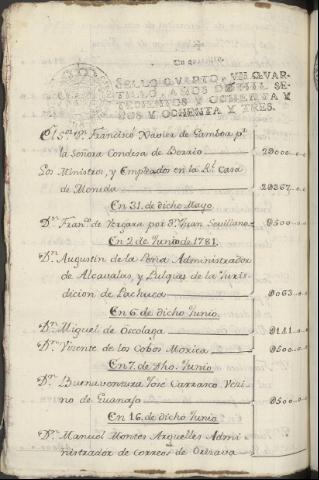 Un quartillo.
SELLO QVARTO, VN QVAR-
TILLO, AÑOS DE MIL SE-
TECIENTOS Y OCHENTA Y
DOS Y OCHENTA Y TRES.
El S.or D.n Francisco Xavier de Gamboa p.r
la Señora Condesa de Berrio 2000
Los Ministros, y Empleados en la R.l Casa
de Moneda 20367
En 31. de dicho Mayo
D.n Fran.co de Vergara por D.n Juan Sevillano 0500
En 2 de Junio de 1781.
D.n Augustin de la Peña Administrador
de Alcavalas, y Pulques de la Juris-
dicion de Pachuca 0063
En 6 de dicho Junio
D.n Miguel de Ocolaga 0141
D.n Vicente de los Cobos Moxica 0500
En 7. de dho. Junio
D.n Buenaventura José Carrasco Veci-
no de Guanajo 0500
En 16. de dicho Junio
D.n Manuel Montes Arguelles Admi-
nistrador de Correos de Orizava